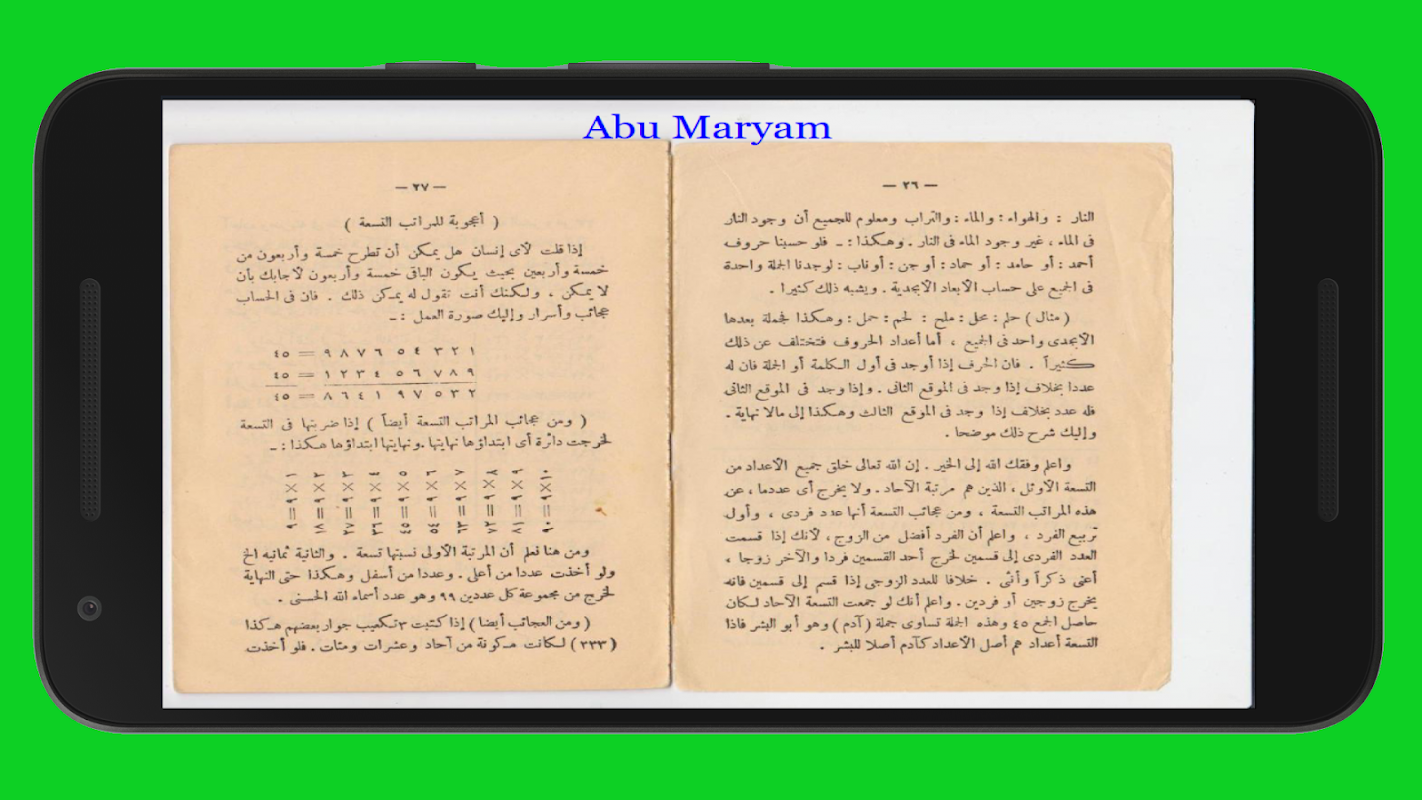 Abu Maryam
— ٢٦ —
النار : والهواء : والماء : والتراب ومعلوم للجميع أن وجود النار
فى الماء ، غير وجود الماء فى النار . وهكذا : ـ فلو حسبنا حروف
أحمد : أو حامد : أو حماد : أو جن : أو ناب : لوجدنا الجملة واحدة
فى الجميع على حساب الأبعاد الأبجدية . ويشبه ذلك كثيرا .
( مثال ) حلم : محل : ملح : لحم : حمل : وهكذا فجملة بعدها
الأبجدى واحد فى الجميع ، أما أعداد الحروف فتختلف عن ذلك
كثيراً . فان الحرف إذا أوجد فى أول الكلمة أو الجملة فان له
عددا بخلاف إذا وجد فى الموقع الثانى . وإذا وجد فى الموقع الثانى
فله عدد بخلاف إذا وجد فى الموقع الثالث وهكذا إلى مالا نهاية .
وإليك شرح ذلك موضحا .
واعلم وفقك الله إلى الخير . إن الله تعالى خلق جميع الأعداد من
التسعة الأوئل ، الذين هم مرتبة الآحاد . ولا يخرج أى عددما ، عن
هذه المراتب التسعة ، ومن عجائب التسعة أنها عدد فردى ، وأول
تربيع الفرد ، واعلم أن الفرد أفضل من الزوج ، لأنك إذا قسمت
العدد الفردى إلى قسمين لخرج أحد القسمين فردا والآخر زوجا ،
أعنى ذكراً وأنثى . خلافا للعدد الزوجى إذا قسم إلى قسمين فانه
يخرج زوجين أو فردين . واعلم أنك لو جمعت التسعة الآحاد لكان
حاصل الجمع ٤٥ وهذه الجملة تساوى جملة ( آدم ) وهو أبو البشر فاذا
التسعة أعداد هم أصل الأعداد كآدم أصلا للبشر .
— ٢٧ —
( أعجوبة للمراتب التسعة )
إذا قلت لأى إنسان هل يمكن أن تطرح خمسة وأربعون من
خمسة وأربعين بحيث يكون الباقى خمسة وأربعون لأجابك بأن
لا يمكن ، ولكنك أنت تقول له يمكن ذلك . فان فى الحساب
عجائب وأسرار وإليك صورة العمل : ـ
٩ ٨ ٧ ٦ ٥ ٤ ٣ ٢ ١ = ٤٥
١ ٢ ٣ ٤ ٥ ٦ ٧ ٨ ٩ = ٤٥
٨ ٦ ٤ ١ ٩ ٧ ٥ ٣ ٢ = ٤٥
( ومن عجائب المراتب التسعة أيضاً ) إذا ضربتها فى التسعة
لخرجت دائرة أى ابتداؤها نهايتها . ونهايتها ابتداؤها هكذا : ـ
١ × ٩ = ٩
٢ × ٩ = ١٨
٣ × ٩ = ٢٧
٤ × ٩ = ٣٦
٥ × ٩ = ٤٥
٦ × ٩ = ٥٤
٧ × ٩ = ٦٣
٨ × ٩ = ٧٢
٩ × ٩ = ٨١
١٠ × ٩ = ٩٠
ومن هنا نعلم أن المرتبة الأولى نسبتها تسعة . والثانية ثمانيه الخ
ولو أخذت عددا من أعلى . وعددا من أسفل وهكذا حتى النهاية
لخرج من مجموعة كل عددين ٩٩ وهو عدد أسماء الله الحسنى .
( ومن العجائب أيضا ) إذا كتبت ٣ تكعيب جوار بعضهم هكذا
( ٣٣٣ ) لكانت مكونة من آحاد وعشرات ومئات . فلو أخذت